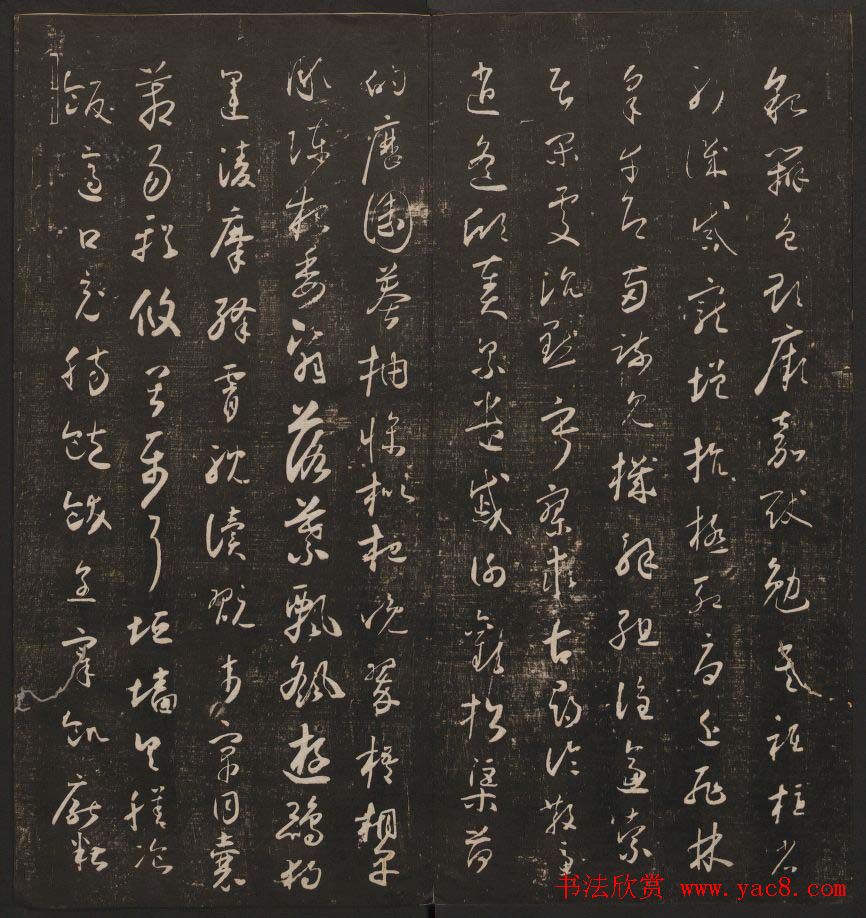 貌辨色貽厥嘉猷勉其祗植省
躬譏誡寵增抗極殆辱近恥林
皋幸即兩疏見機解組誰逼索
居閑處沉默寂寥求古尋論散慮
逍遙欣奏累遣慼謝歡招渠荷
的歷園莽抽條枇杷晚翠梧桐早
凋陳根委翳落葉飄颻遊鵾獨
運凌摩絳霄耽讀翫市寓目囊
箱易輶攸畏屬耳垣牆具膳飡
飯適口充腸飽飫烹宰飢厭糟
书法欣赏 www.yac8.com